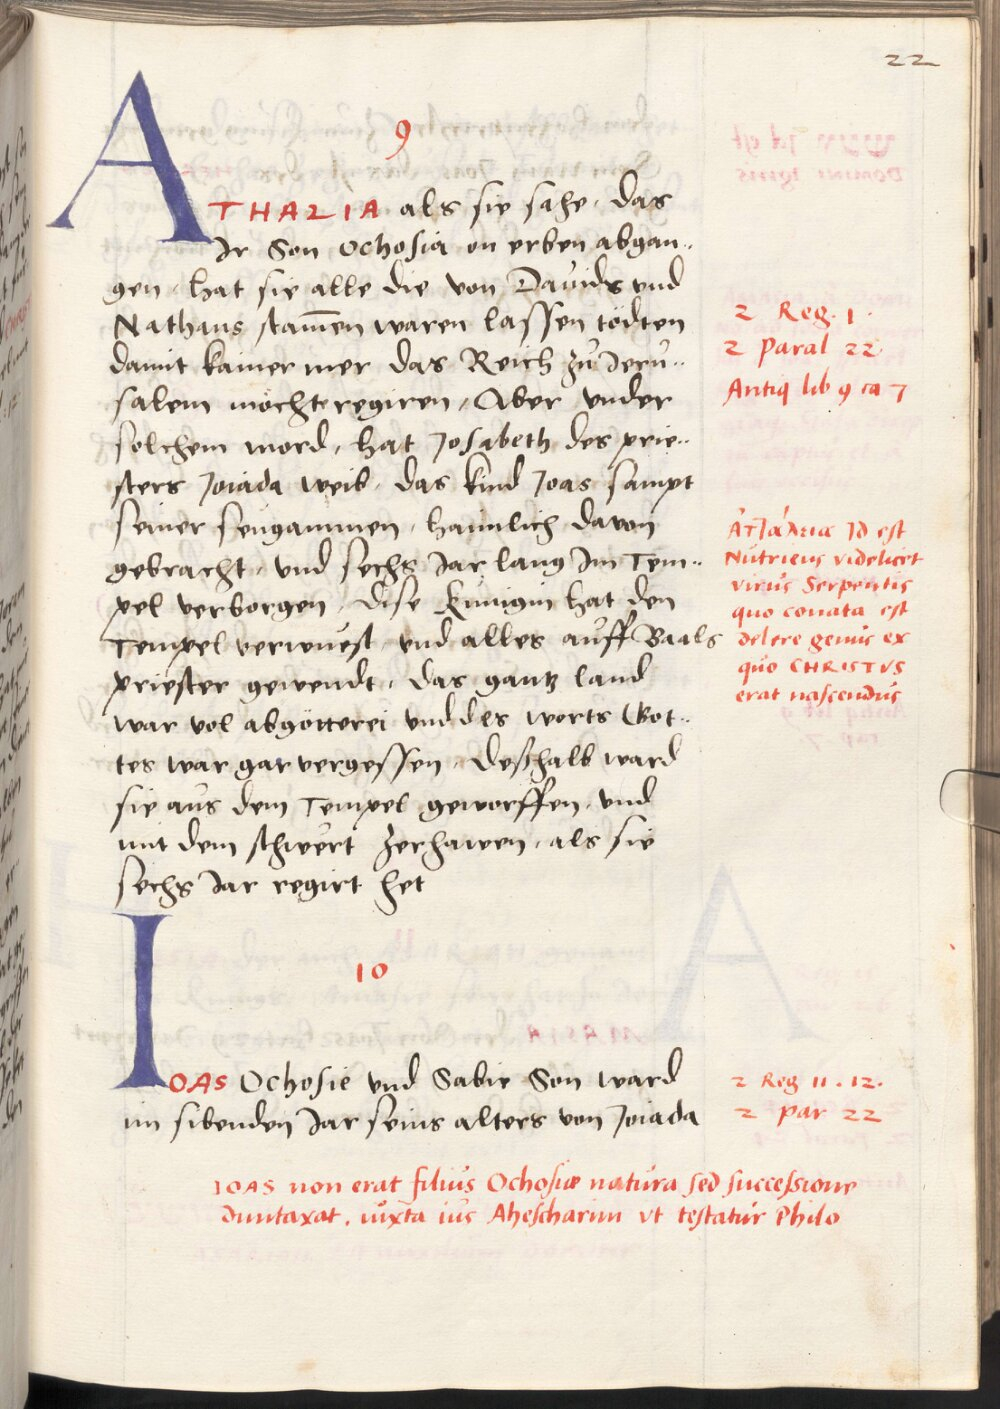 22
9
ATHALIA als sie sahe, das
Ir Son Ochosia on erben abgan-
gen, hat sie alle die von Davids und
Nathans stam̅en waren lassen tödten
damit kainer mer das Reich zu Jeru-
salem möcht regiren, Aber under
solchem mord, hat Josabeth des prie-
sters Joiada weib, das kind Joas sampt
seiner seugammen, haimlich davon
gebracht, und sechs Jar lang Im Tem-
pel verborgen, Dise Künigin hat den
Tempel verwuest, und alles auff Baals
priester gewendt, das gantz land
war vol abgötterei und des worts Got-
tes war gar vergessen, deßhalb ward
sie aus dem Tempel geworffen, und
mit dem schwert zerhawen, als sie
sechs Jar regirt het
2 Reg. 1.
2 Paral 22
Antiq lib 9 ca 7
Id est
Nutriens videlicet
virus Serpentis
quo conata est
delere genus ex
quo CHRISTVS
erat nascendus
10
IOAS Ochosie und Sabie Son ward
im sibenden Jar seins alters von Joiada
2 Reg 11. 12.
2 par 22
IOAS non erat filius Ochosiæ natura sed successione
duntaxat, iuxta ius Ahescharim ut testatur Philo